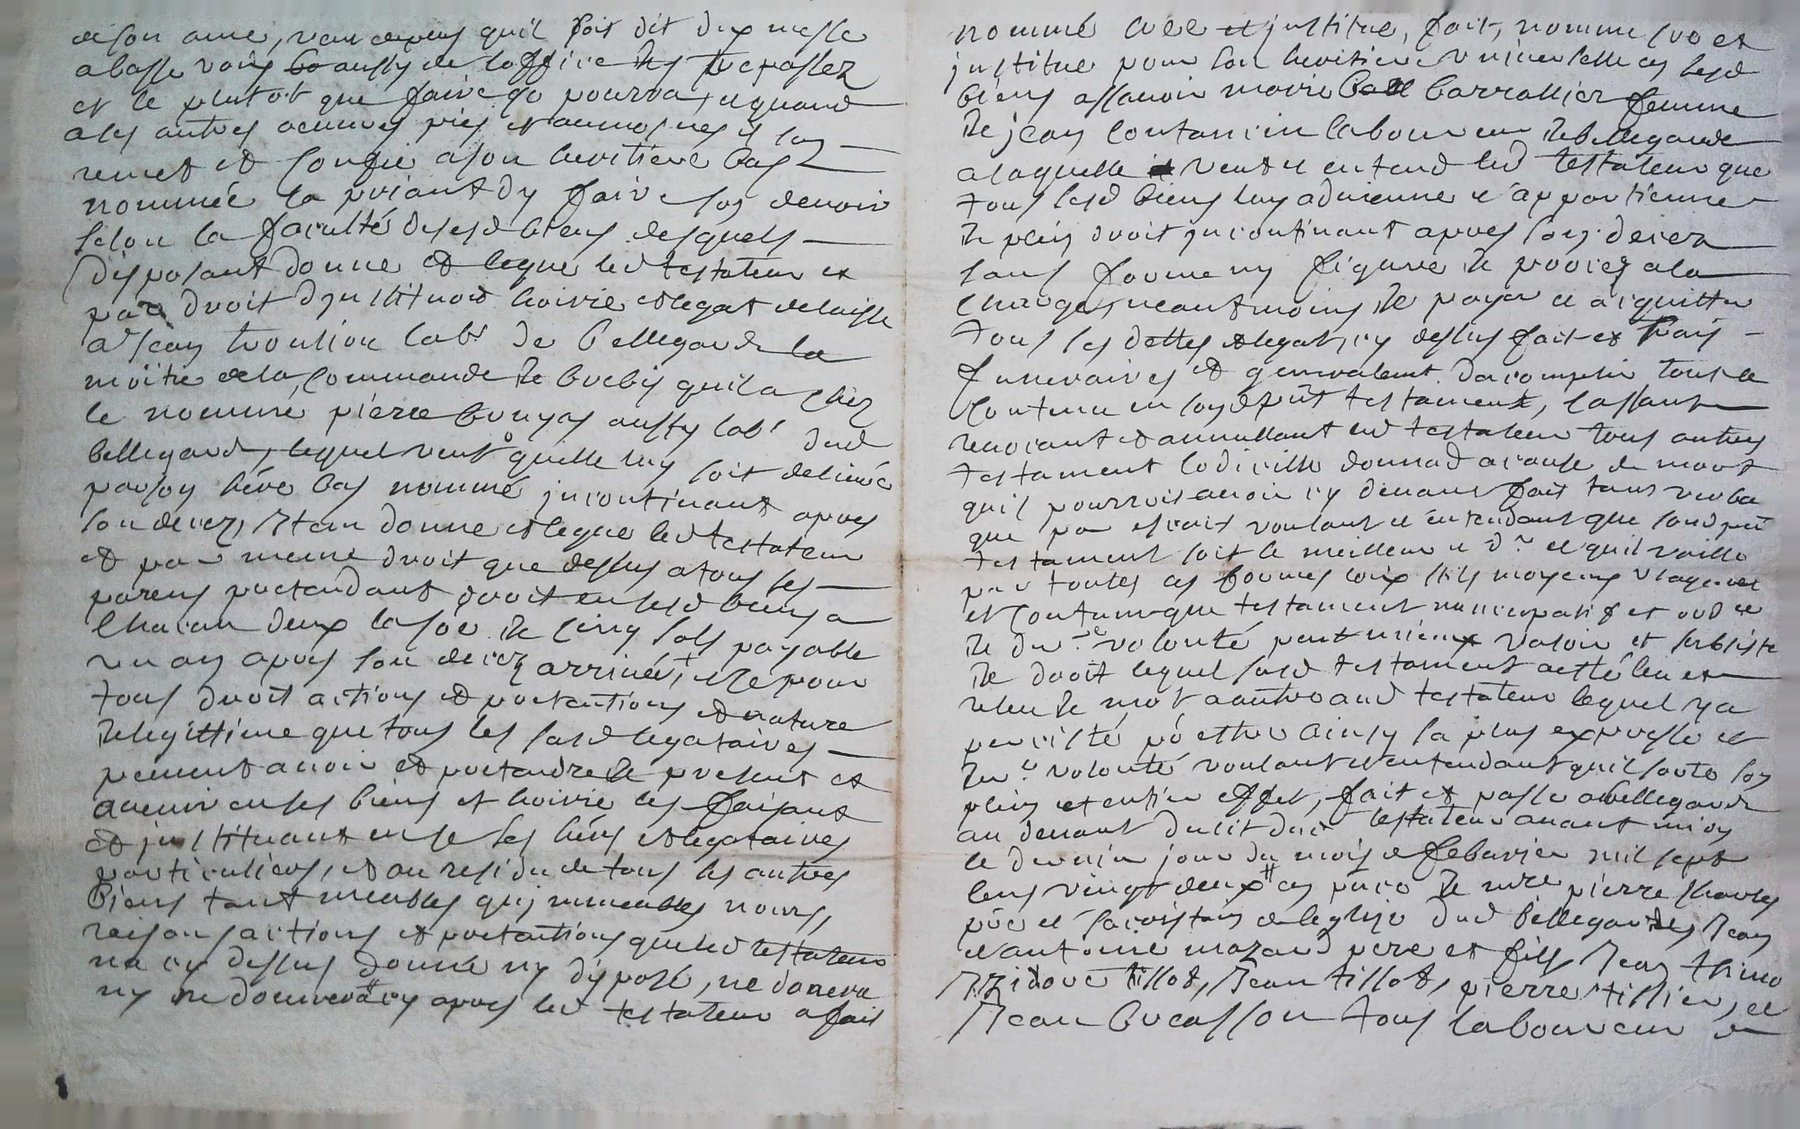 de son ame, veut quil soit dit dix messe
a basse voix aussy de loffice des trepassez
et le plutot que faire ce pourra, et quand
a ses autres œuvres pies et aumosnes il sen
remet et confie a son heritiere bas
nommée la priant dy faire son devoir
selon la faculté de sesd biens desquels
disposant donne et legue led testateur et
par droit dinstituon hoirie et legat delaisse
a Jean labr de Bellegarde la
moitie de la commande de brebis quil a chez
le nommé pierre aussy labr dud
bellegarde, lequel veut quelle luy soit delivrée
par son here bas nommé incontinant apres
son decez, Item donne et legue led testateur
et par meme droit que dessus a tous ses
parens pretendant droit en sesd biens a
chacun deux la soe de cinq sols payable
un an apres son decez arrivé, et ce pour
tous droit actions et pretentions et nature
de legittime que tous les susd legataires
peuvent avoir et pretendre de present et
avenir en ses biens et hoirie les faisant
et instituant en ce ses hers et legataires
particuliers, et au residu de tous les autres
biens tant meubles qu immeubles noms,
raisons actions et pretentions que led testateur
na cy dessus donné ny disposé, ne donera
ny ne disposera cy apres led testateur a fait
nommé créé et institue, fait, nomme crée et
institue pour son heritiere universelle en sesd
biens assavoir marie barrallier femme
de jean contancin laboureur de bellegarde
a laquelle veut et entend led testateur que
tous sesd biens luy advienne et appartienne
de plein droit incontinant apres son decez
sans forme ny figure de proces a la
charge, neantmoins de payer et acquitter
tous ses dettes et legats, cy dessus fait et frais
funeraires et generalemt daccomplir tout le
contenu en sond pnt testament, cassant
revocant et annullant led testateur tous autres
testament codicille donnaon a cause de mort
quil pourroit avoir cy devant fait tant verba
que par escrit voulant et entendant que sond pnt
testament soit le meilleur et dr et quil vaille
par toutes les formes loix stils moyens usages
et coutume que testament nuncupatif et ord re
de dre volonté peut mieux valoir et subsiste
de droit lequel susd testament a esté leu et
releu de mot a autre aud testateur lequel y a
persisté po estre ainsy sa plus expresse et
dre volonté voulant et entendant quil sorte son
plein et entier effet, fait et passé a bellegarde
au devant du lit dud testateur avant midy
le dernier jour du mois de febvrier mil sept
cens vingt deux en pnce de mre pierre
pre et sacristain de leglise dud bellegarde, Jean
et antoine mazard pere et fils Jean
tillot, Jean tillot, pierre tissier, et
Jean bucasson tous laboureur